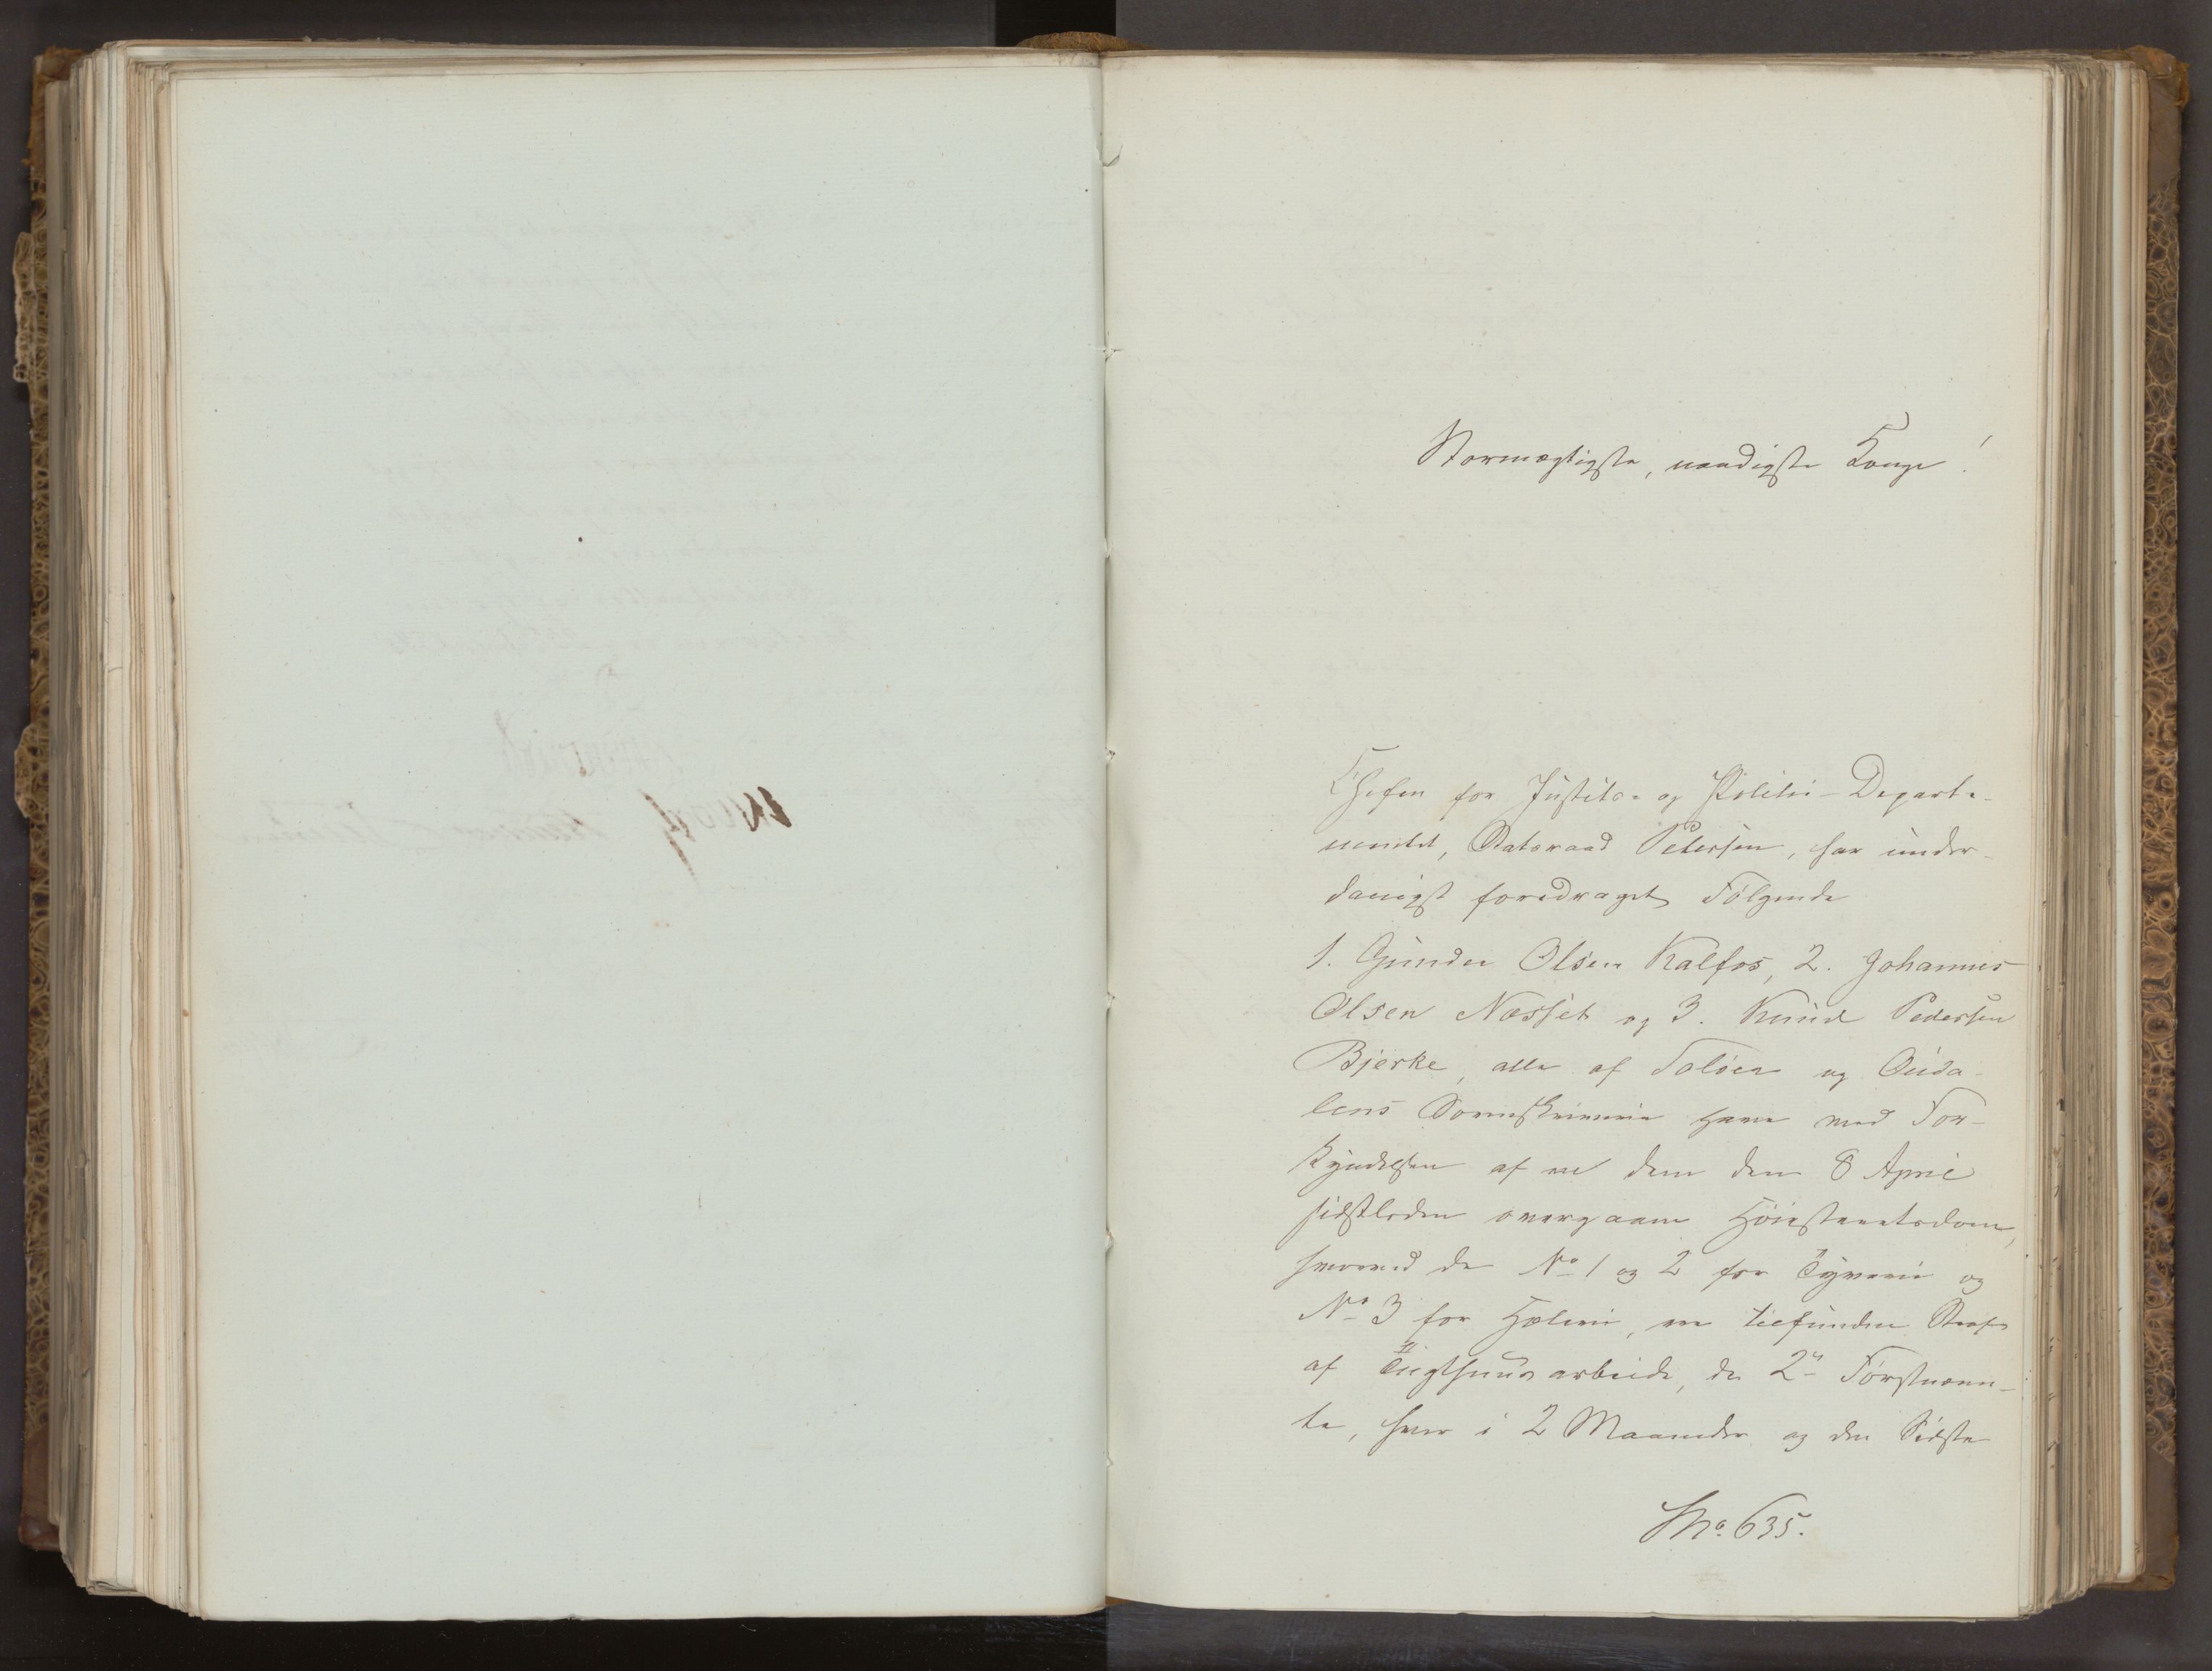 Stormægtigste, naadigste Konge!
Chefen for Justits- og Politi-Departe-
mentet, Statsraad Petersen, har under-
danigst foredraget Følgende
1. Gunder Olsen Kalfos, 2. Johannes
Olsen Næsset og 3. Knud Pedersen
Bjerke, alle af Soløer og Ouda-
lens Sorenskriveri have ved For-
kyndelsen af en dem den 8 April
sidstleden overgaaen Høiesteretsdom,
hvorved de No 1 og 2 for Tyveri og
No 3 for Hæleri, ere tilfundne Straf
af Tugthuusarbeide, de 2de Førstnævn-
te, hver i 2 Maaneder og den Sidste
No. 635.